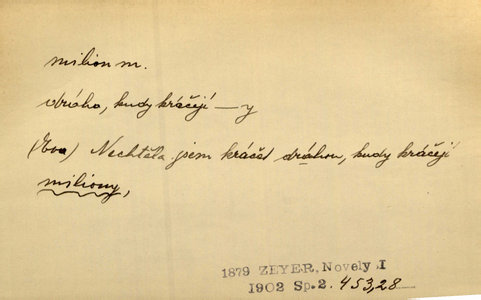 milion m.
dráha, kudy kráčejí —y
(Eva) Nechtěla jsem kráčet dráhou, kudy kráčejí
miliony,
1879 ZEYER, Novely I
1902 Sp.2. 453,28